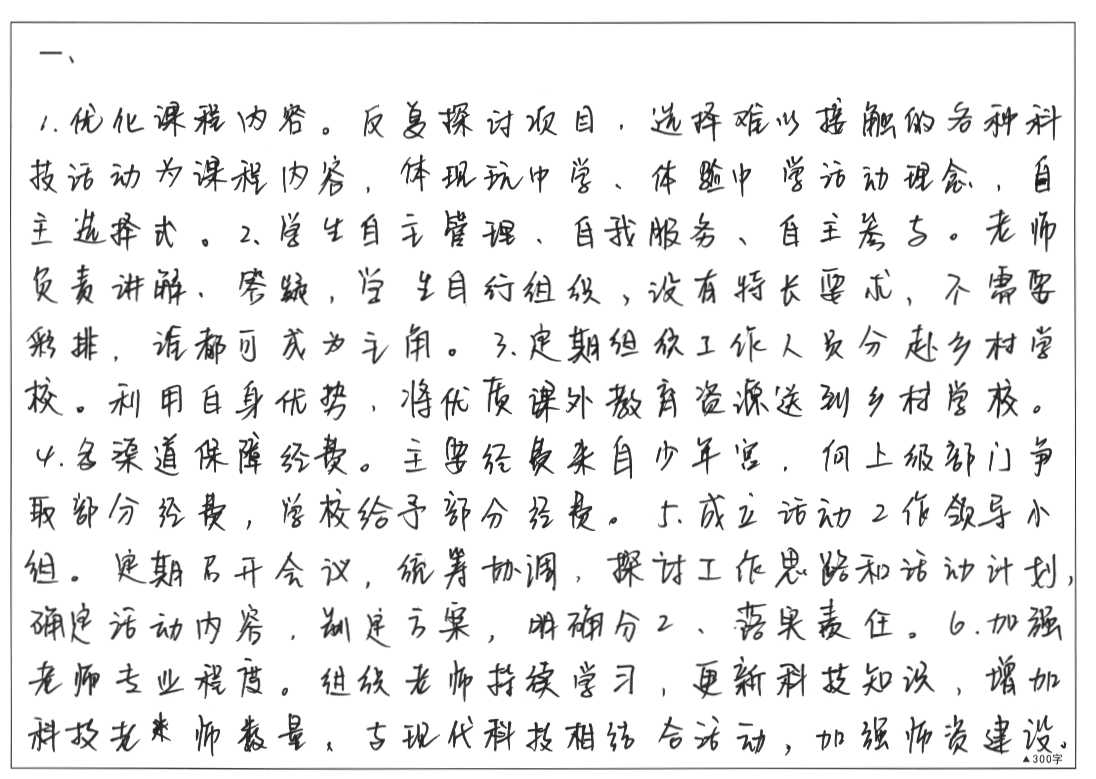 一、
1.优化课程内容。反复探讨项目，选择难以接触的各种科
技活动为课程内容，体现玩中学、体验中学活动理念，自
主选择式。2、学生自主管理、自我服务、自主参与。老师
负责讲解、答疑，学生自行组织，没有特长要求，不需要
彩排，谁都可成为主角。3.定期组织工作人员分赴乡村学
校。利用自身优势，将优质课外教育资源送到乡村学校。
4.多渠道保障经费。主要经费来自少年宫，向上级部门争
取部分经费，学校给予部分经费。5.成立活动工作领导小
组。定期召开会议，统筹协调，探讨工作思路和活动计划，
确定活动内容，制定方案，明确分工、落实责任。6.加强
老师专业程度。组织老师持续学习，更新科技知识，增加
科技老师数量，与现代科技相结合活动，加强师资建设。
▲300字